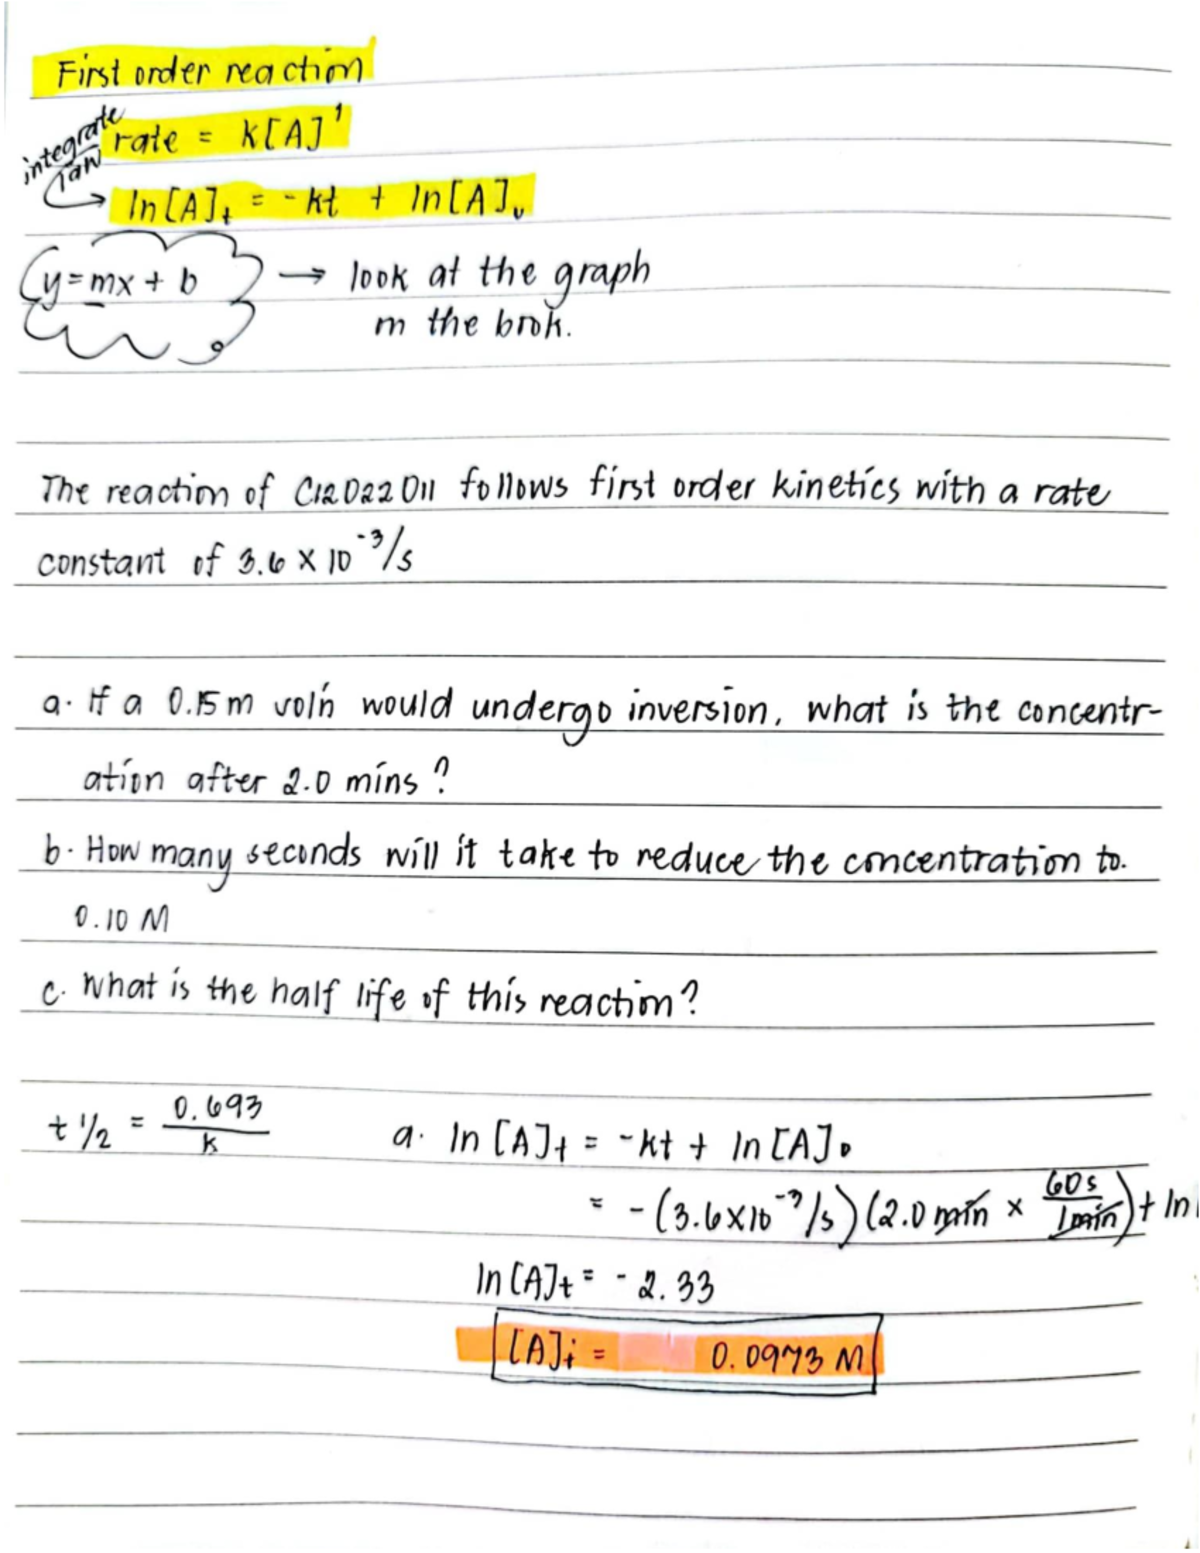 First order reaction
integrate law
rate = k[A]¹
ln[A]t = -kt + ln[A]₀
y=mx + b → look at the graph
in the book.
The reaction of C12O22O11 follows first order kinetics with a rate
constant of 3.6 x 10⁻³/s
a. If a 0.15m sol'n would undergo inversion, what is the concentr-
ation after 2.0 mins?
b. How many seconds will it take to reduce the concentration to.
0.10 M
c. What is the half life of this reaction?
t 1/2 = 0.693/k
a. ln [A]t = -kt + ln [A]₀
= -(3.6x10⁻³/s)(2.0 min x 60s/1min) + ln
ln[A]t = -2.33
[A]t = 0.0973 M